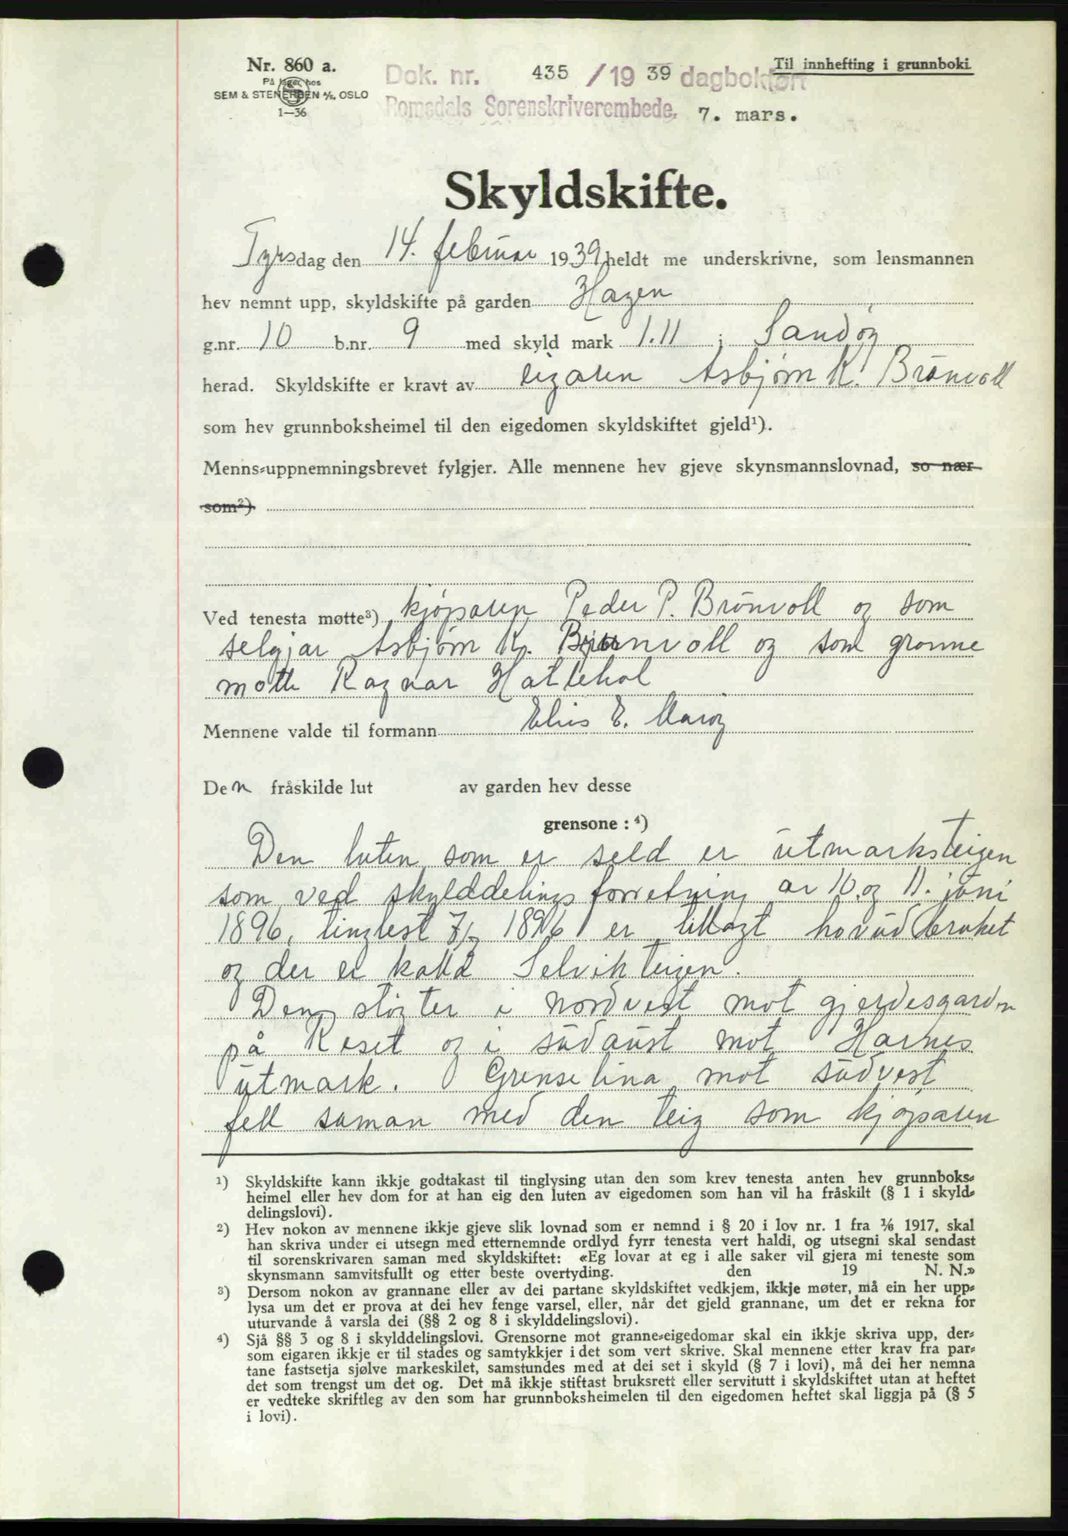 Nr. 860 a.
På lager hos
SEM & STENERSEN A/S, OSLO
1—36
Dok. nr. 435 / 19 39 dagbokført
Romsdals Sorenskriverembede, 7. mars.
Til innhefting i grunnboki
Skyldskifte.
Tyrsdag den 14. februar 1939 heldt me underskrivne, som lensmannen
hev nemnt upp, skyldskifte på garden Hagen
g.nr. 10 b.nr. 9 med skyld mark 1.11 i Sandøy
herad. Skyldskifte er kravt av eigaren Asbjørn K. Brönvoll
som hev grunnboksheimel til den eigedomen skyldskiftet gjeld¹).
Menns-uppnemningsbrevet fylgjer. Alle mennene hev gjeve skynsmannslovnad, so nær
som²)
Ved tenesta møtte³) kjöparen Peder P. Brönvoll og som
seljar Asbjørn K. Brönvoll og som granne
møtte Ragnar Hatlehol
Mennene valde til formann E. Marøy
Den fråskilde lut av garden hev desse
grensone : ⁴)
Den luten som er seld er utmarksteigen
som ved skylddelingsforretning av 10. og 11. juni
1896, tinglest 1896 er tillagt hovudbruket
og der er kalla Selvikteigen.
Den støyter i nordvest mot gjerdesgarden
på Røset og i sudaust mot Harnes
utmark. Grenselina mot sudvest
fell saman med den teig som kjøparen
¹) Skyldskifte kann ikkje godtakast til tinglysing utan den som krev tenesta anten hev grunnboks-
heimel eller hev dom for at han eig den luten av eigedomen som han vil ha fråskilt (§ 1 i skyld-
delingslovi).
²) Hev nokon av mennene ikkje gjeve slik lovnad som er nemnd i § 20 i lov nr. 1 fra 1/6 1917, skal
han skriva under ei utsegn med etternemnde ordlyd fyrr tenesta vert haldi, og utsegni skal sendast
til sorenskrivaren saman med skyldskiftet: «Eg lovar at eg i alle saker vil gjera mi teneste som
skynsmann samvitsfullt og etter beste overtyding. den 19 N. N.»
³) Dersom nokon av grannane eller av dei partane skyldskiftet vedkjem, ikkje møter, må ein her upp-
lysa um det er prova at dei hev fenge varsel, eller, når det gjeld grannane, um det er rekna for
uturvande å varsla dei (§§ 2 og 8 i skylddelingslovi).
⁴) Sjå §§ 3 og 8 i skylddelingslovi. Grensorne mot granne-eigedomar skal ein ikkje skriva upp, der-
som eigaren ikkje er til stades og samtykkjer i det som vert skrive. Skal mennene etter krav frå par-
tane fastsetja sjølve markeskilet, samstundes med at dei set i skyld (§ 7 i lovi), må dei her nemna
det som trengst um det og. Det må ikkje stiftast bruksrett eller servitutt i skyldskiftet utan at heftet
er vedteke skriftleg av den som har grunnboksheimelen til den eigedomen heftet skal liggja på (§ 5
i lovi).